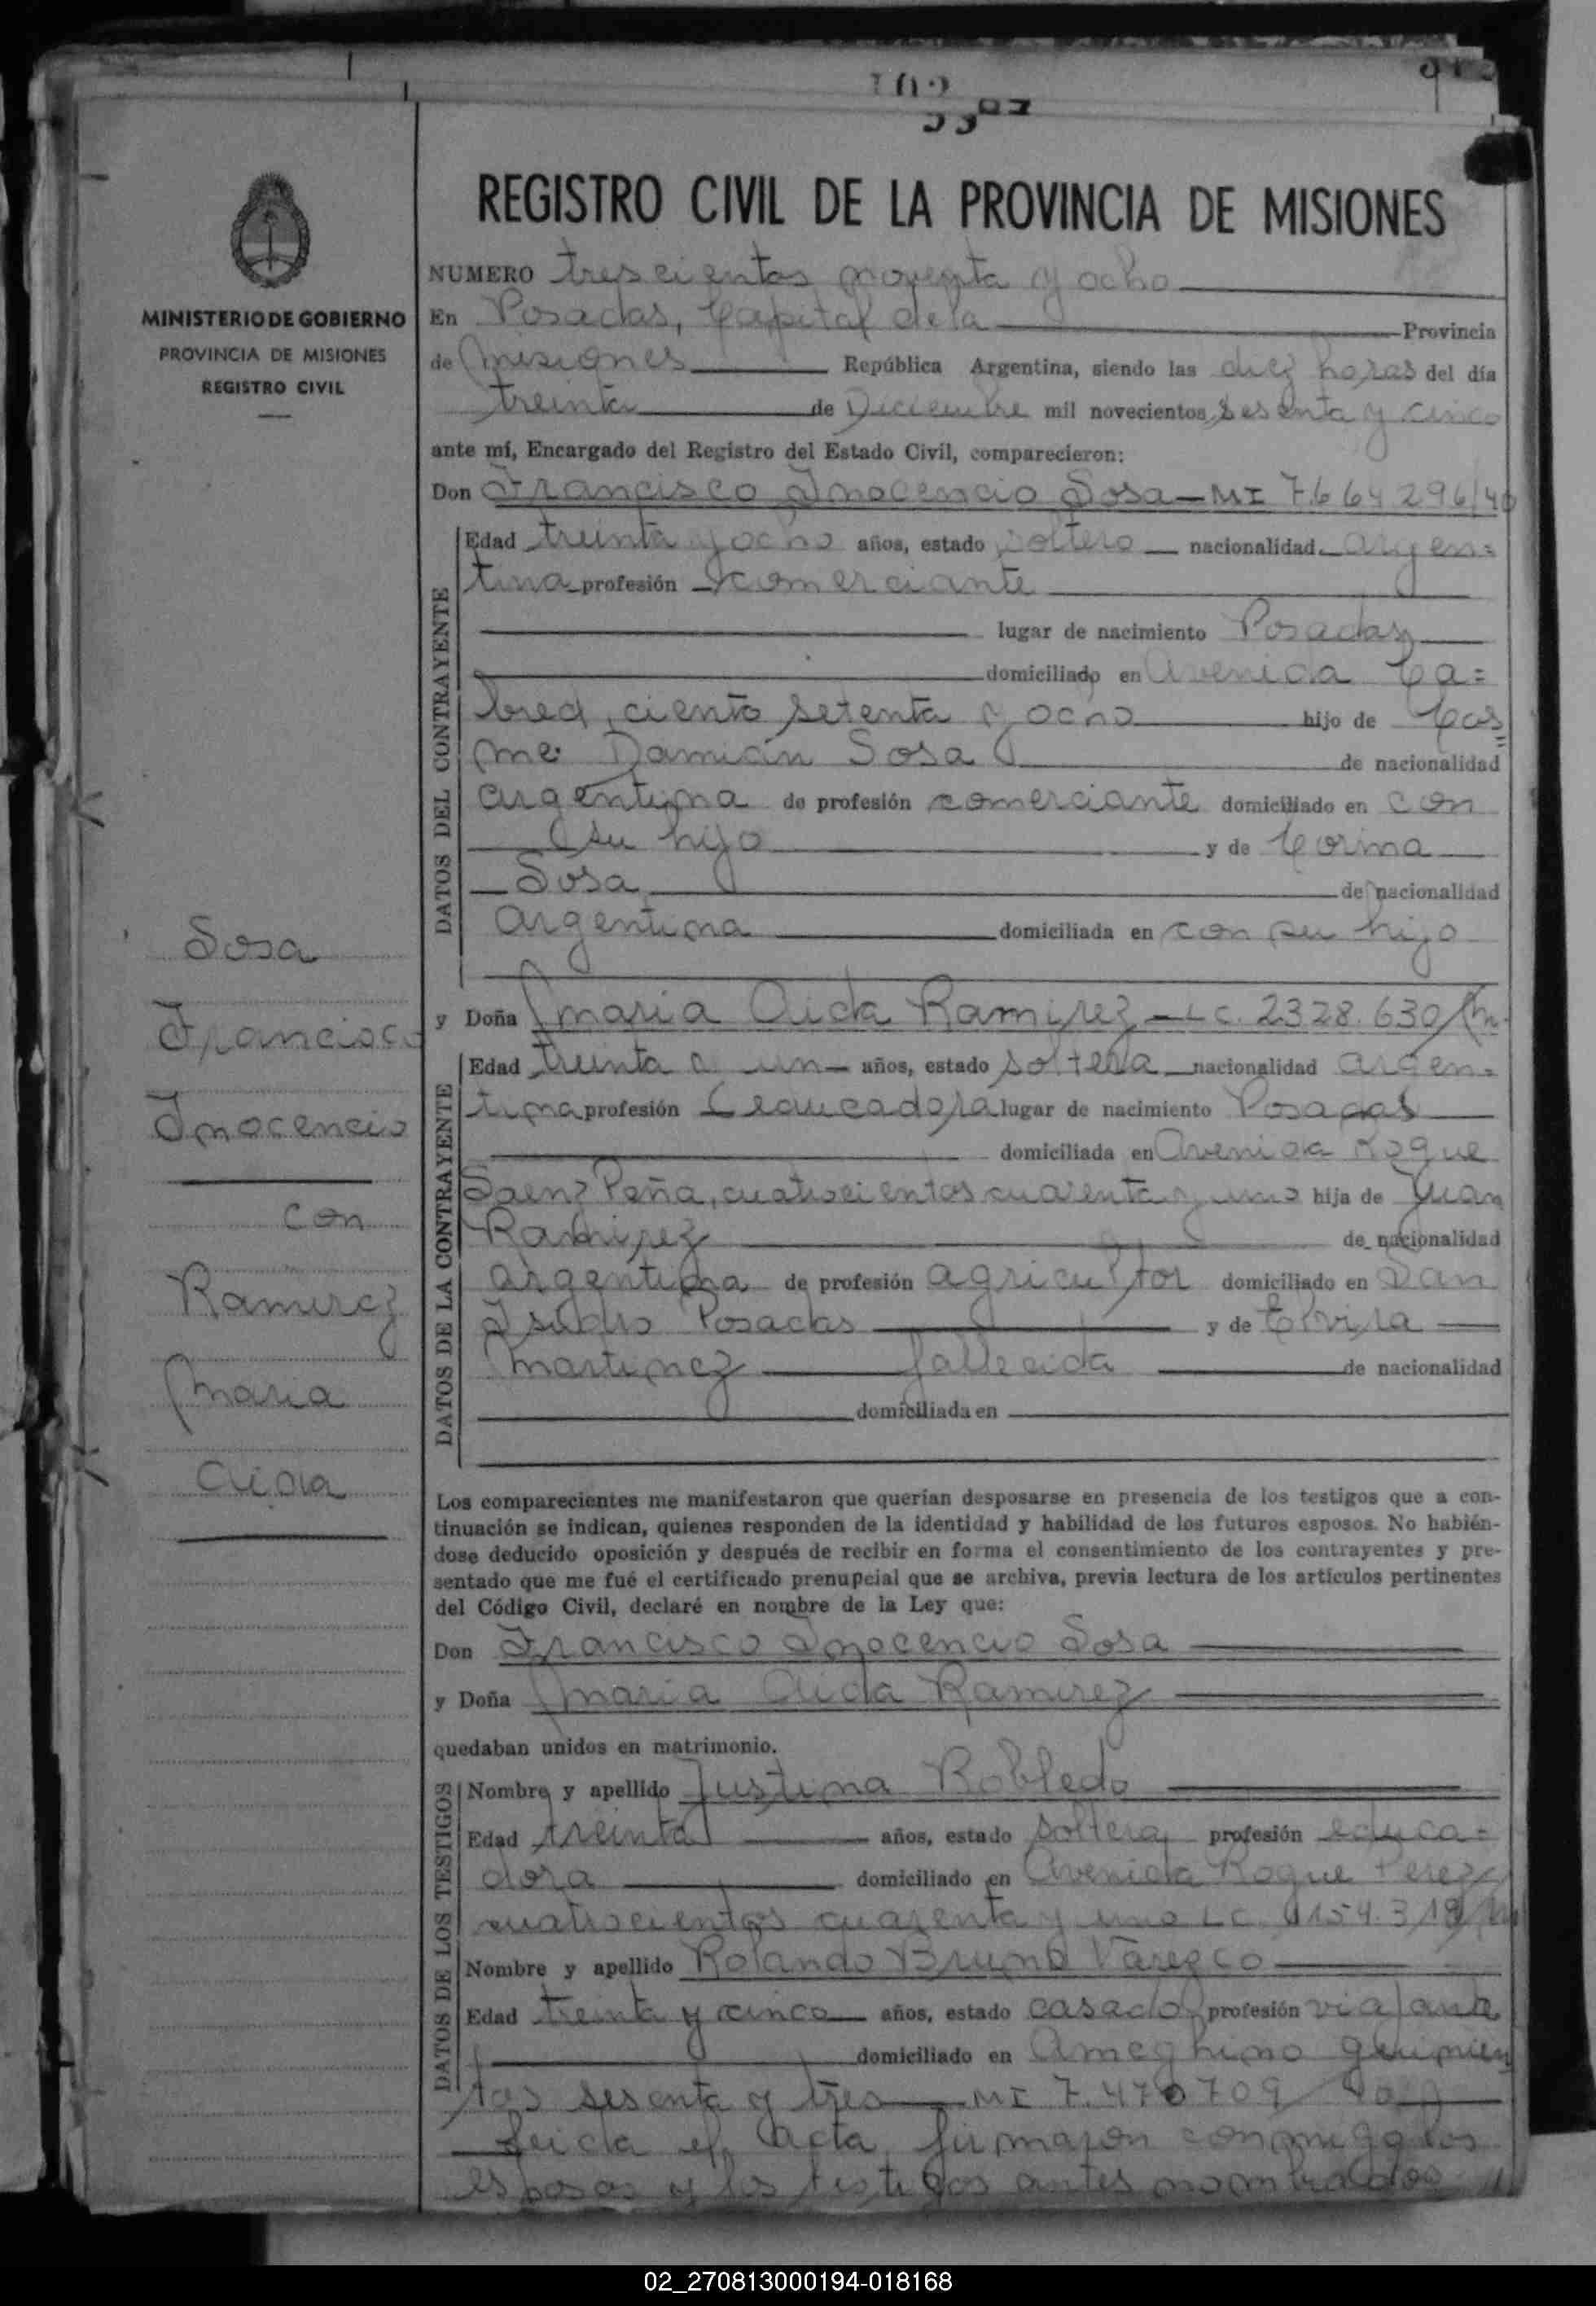 REGISTRO CIVIL DE LA PROVINCIA DE MISIONES
MINISTERIO DE GOBIERNO
PROVINCIA DE MISIONES
REGISTRO CIVIL
NUMERO trescientos noventa y ocho
En Posadas, Capital de la Provincia
de Misiones República Argentina, siendo las diez horas del día
treinta de Diciembre mil novecientos sesenta y cinco
ante mí, Encargado del Registro del Estado Civil, comparecieron:
Don Francisco Inocencio Sosa - MI 7.664.296/40
DATOS DEL CONTRAYENTE
Edad treinta y ocho años, estado soltero nacionalidad argen=
tina profesión comerciante
lugar de nacimiento Posadas
domiciliado en Avenida Ca=
bred, ciento setenta y ocho hijo de Cos
me Damián Sosa de nacionalidad
argentina de profesión comerciante domiciliado en con
su hijo y de Corina
Sosa de nacionalidad
argentina domiciliada en con su hijo
y Doña Maria Aida Ramirez - LC. 2328.630
DATOS DE LA CONTRAYENTE
Edad treinta y un años, estado soltera nacionalidad argen-
tina profesión educadora lugar de nacimiento Posadas
domiciliada en Avenida Roque
Saenz Peña, cuatrocientos cuarenta y uno hija de Juan
Ramirez de nacionalidad
argentina de profesión agricultor domiciliado en San
Isidro Posadas y de Elvira
Martinez fallecida de nacionalidad
domiciliada en
Sosa
Francisco
Inocencio
con
Ramirez
Maria
Aida
Los comparecientes me manifestaron que querían desposarse en presencia de los testigos que a con-
tinuación se indican, quienes responden de la identidad y habilidad de los futuros esposos. No habién-
dose deducido oposición y después de recibir en forma el consentimiento de los contrayentes y pre-
sentado que me fué el certificado prenupcial que se archiva, previa lectura de los artículos pertinentes
del Código Civil, declaré en nombre de la Ley que:
Don Francisco Inocencio Sosa
y Doña Maria Aida Ramirez
quedaban unidos en matrimonio.
DATOS DE LOS TESTIGOS
Nombre y apellido Justina Robledo
Edad treinta años, estado soltera profesión educa=
dora domiciliado en Avenida Roque Perez
cuatrocientos cuarenta y uno LC
Nombre y apellido Rolando Bruno
Edad treinta y cinco años, estado casado profesión viajante
domiciliado en Ameghino quinien
tos sesenta y tres MI 7.470709
Leida el acta firmaron conmigo los
esposos y los testigos antes nombrados
02_270813000194-018168